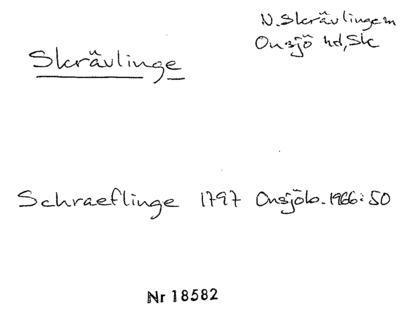 N. Skrävlinge sn
Onsjö hd, Sk
Skrävlinge
Schraeflinge 1797 Onsjöb. 1966:50
Nr 18582